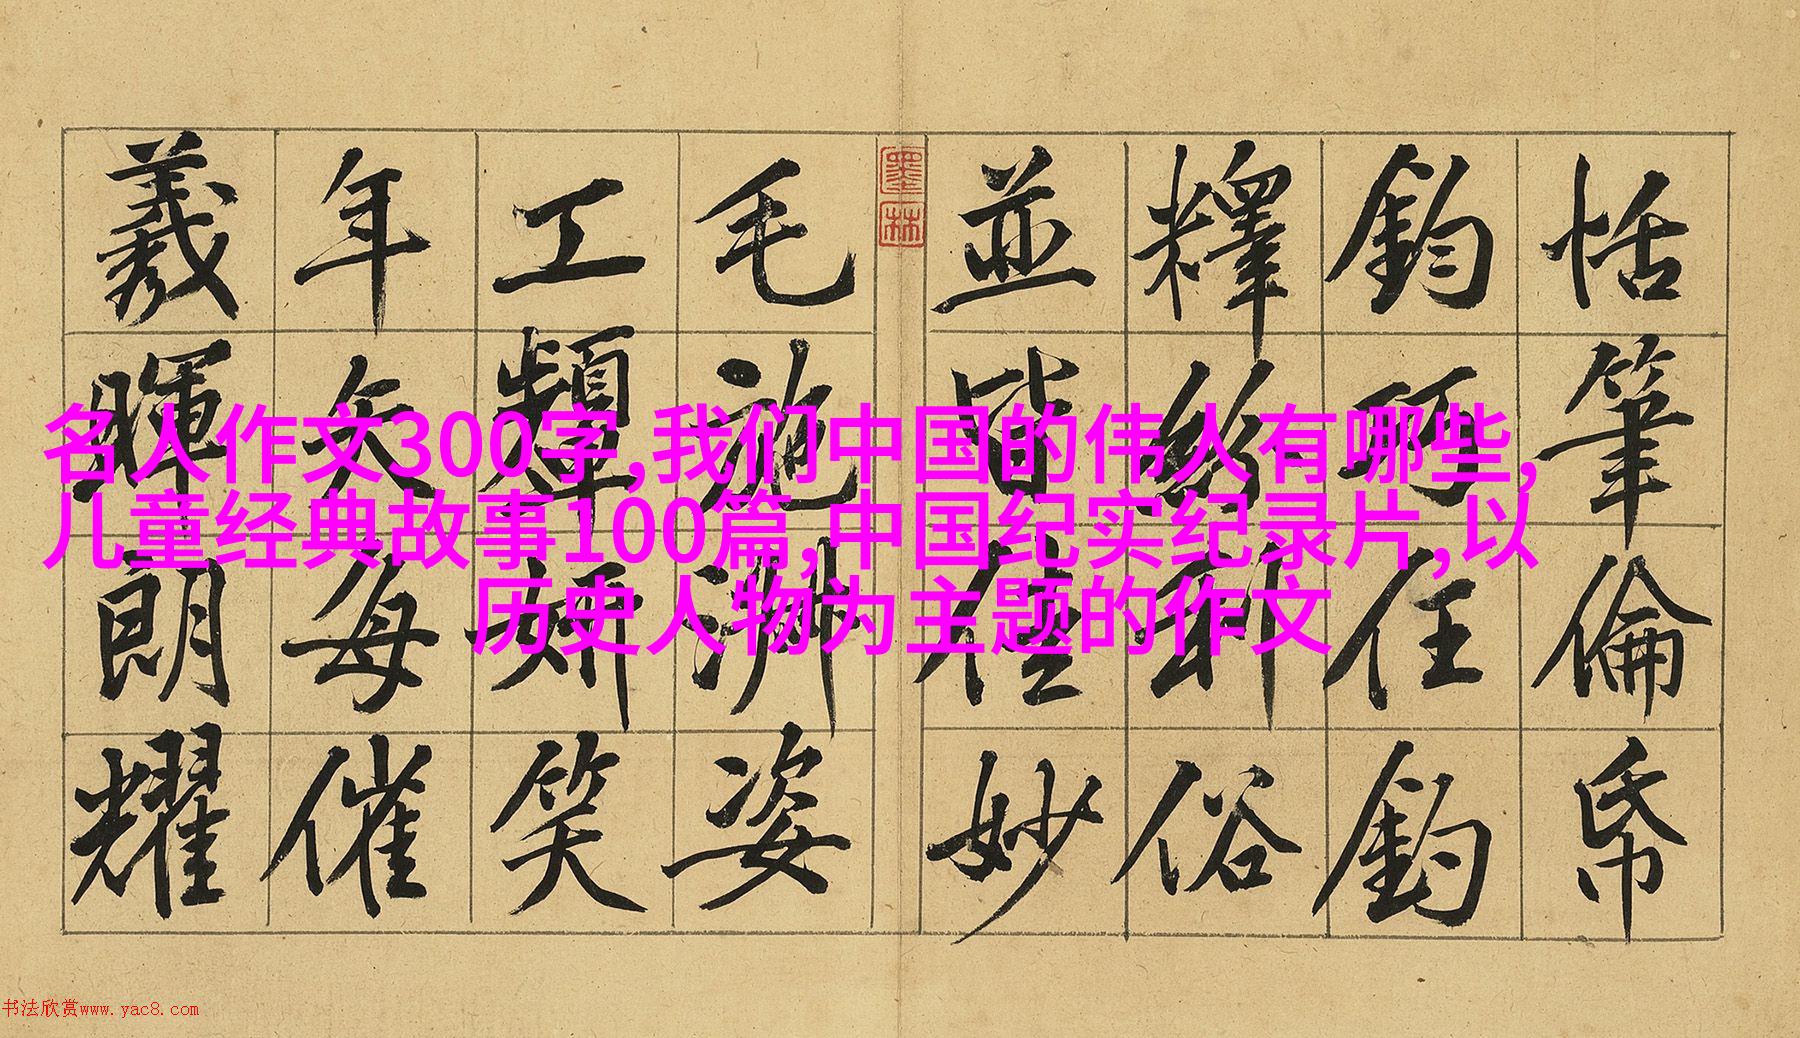 恬筆倫帋
鈞巧任釣
釋紛利俗
並皆佳妙
墨林
毛施淑姿
工顰妍笑
年矢每催
羲暉朗耀
名人作文300字,我们中国的伟人有哪些,
儿童经典故事100篇,中国纪实纪录片,以
历史人物为主题的作文
书法欣赏www.yac8.com